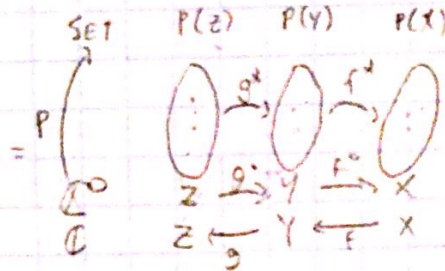 SET P(Z) P(Y) P(X)
P g* f*
=
ℂ° Z g° Y f° X
ℂ Z g Y f X